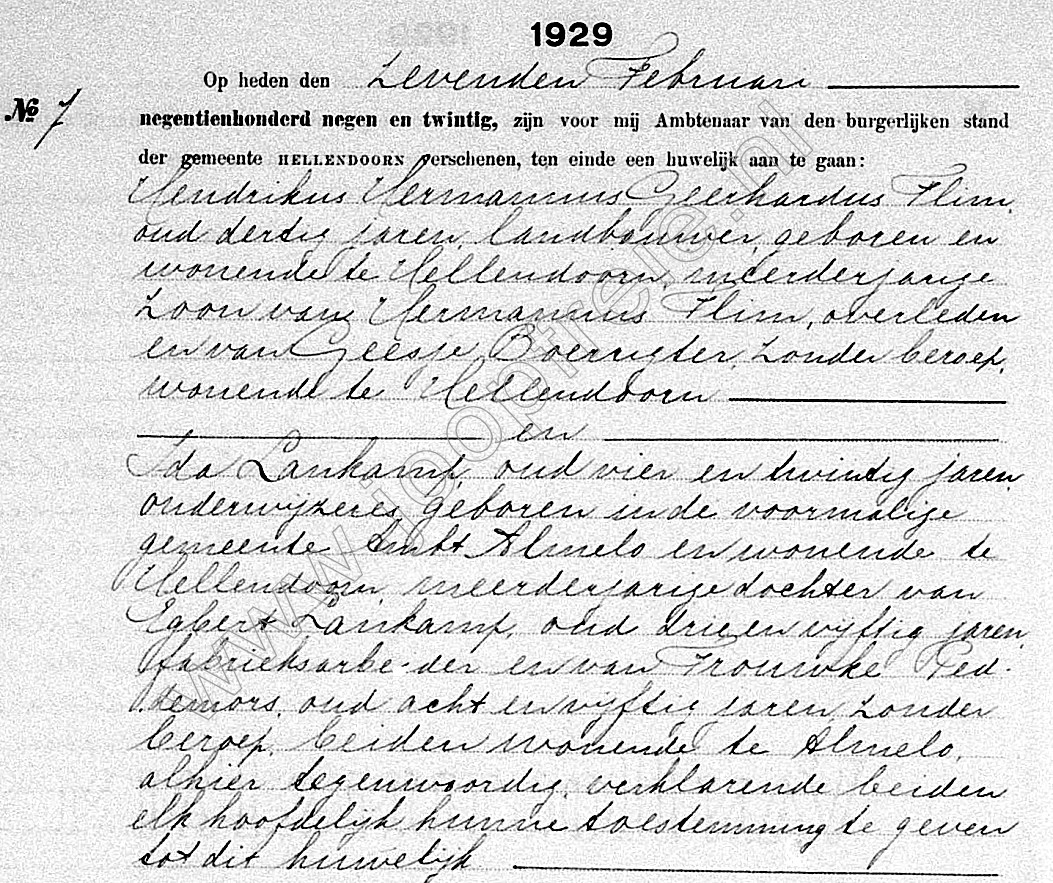 1929
Op heden den zevenden Februari
No 7
negentienhonderd negen en twintig, zijn voor mij Ambtenaar van den burgerlijken stand
der gemeente HELLENDOORN verschenen, ten einde een huwelijk aan te gaan:
Hendrikus Hermannus Geerhardus Flim,
oud dertig jaren, landbouwer, geboren en
wonende te Hellendoorn, meerderjarige
zoon van Hermannus Flim, overleden
en van Geesje Boerrigter, zonder beroep,
wonende te Hellendoorn
en
Ida Lankamp, oud vier en twintig jaren,
onderwyzeres, geboren in de voormalige
gemeente Ambt Almelo en wonende te
Hellendoorn, meerderjarige dochter van
Egbert Lankamp, oud drie en vyftig jaren,
fabrieksarbeider en van Trouwke Ped-
demors, oud acht en vyftig jaren, zonder
beroep, beiden wonende te Almelo,
alhier tegenwoordig, verklarende beiden
elk hoofdelyk hunne toestemming te geven
tot dit huwelyk
www.jooptrefe.nl